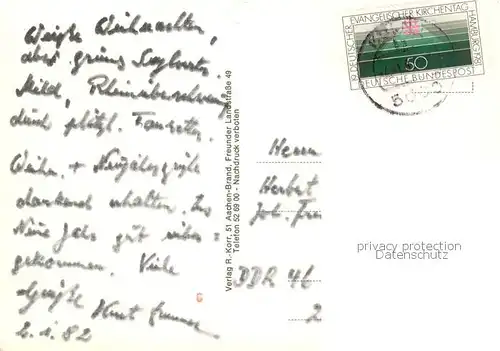 Weiße Weihnachten,
aber grünes Sylvester.
Mild, Rheinüberschwemmung
durch plötzl.
Weihn. + Neujahrsgrüße
dankend erhalten. Ins
Neue Jahr gut rüber=
gekommen. Viele
Grüße Kurt
2.1.82
Verlag R. Korr, 51 Aachen-Brand, Freunder Landstraße 49
Telefon 52 69 00 - Nachdruck verboten
19. DEUTSCHER EVANGELISCHER KIRCHENTAG HAMBURG 1981
50
DEUTSCHE BUNDESPOST
Herrn
Herbert
Joh.
DDR 46
2
privacy protection
Datenschutz